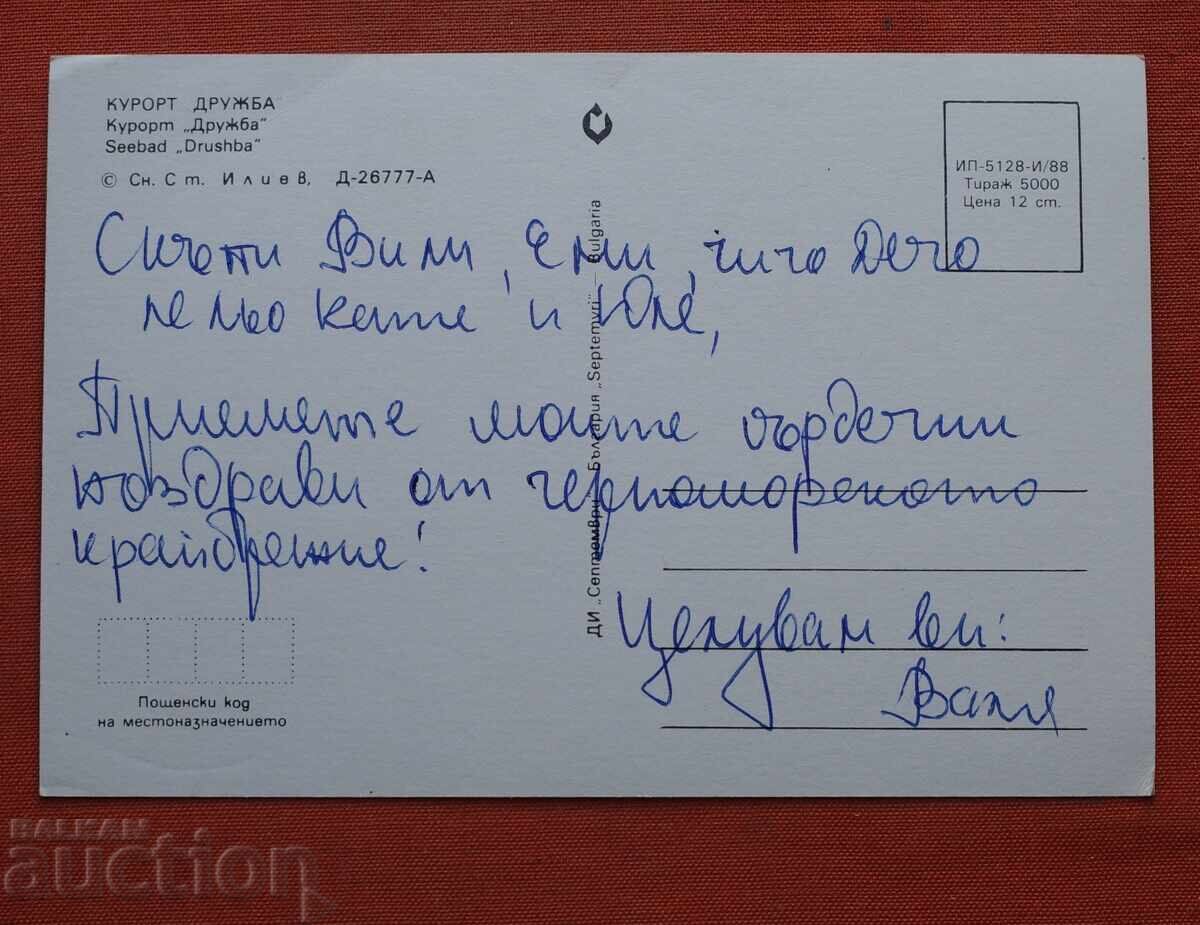 КУРОРТ ДРУЖБА
Курорт „Дружба"
Seebad „Drushba"
© Сн. Ст. Илиев, Д-26777-А
ИП-5128-И/88
Тираж 5000
Цена 12 ст.
Скъпи Вили, Ели, чичо Дечо
лельо Кате и Юле,
Приемете моите сърдечни
поздрави от черноморското
крайбрежие!
Целувам ви:
Ваня
ДИ „Септември" България „Septemvri" — Bulgaria
Пощенски код
на местоназначението
BALKAN
auction